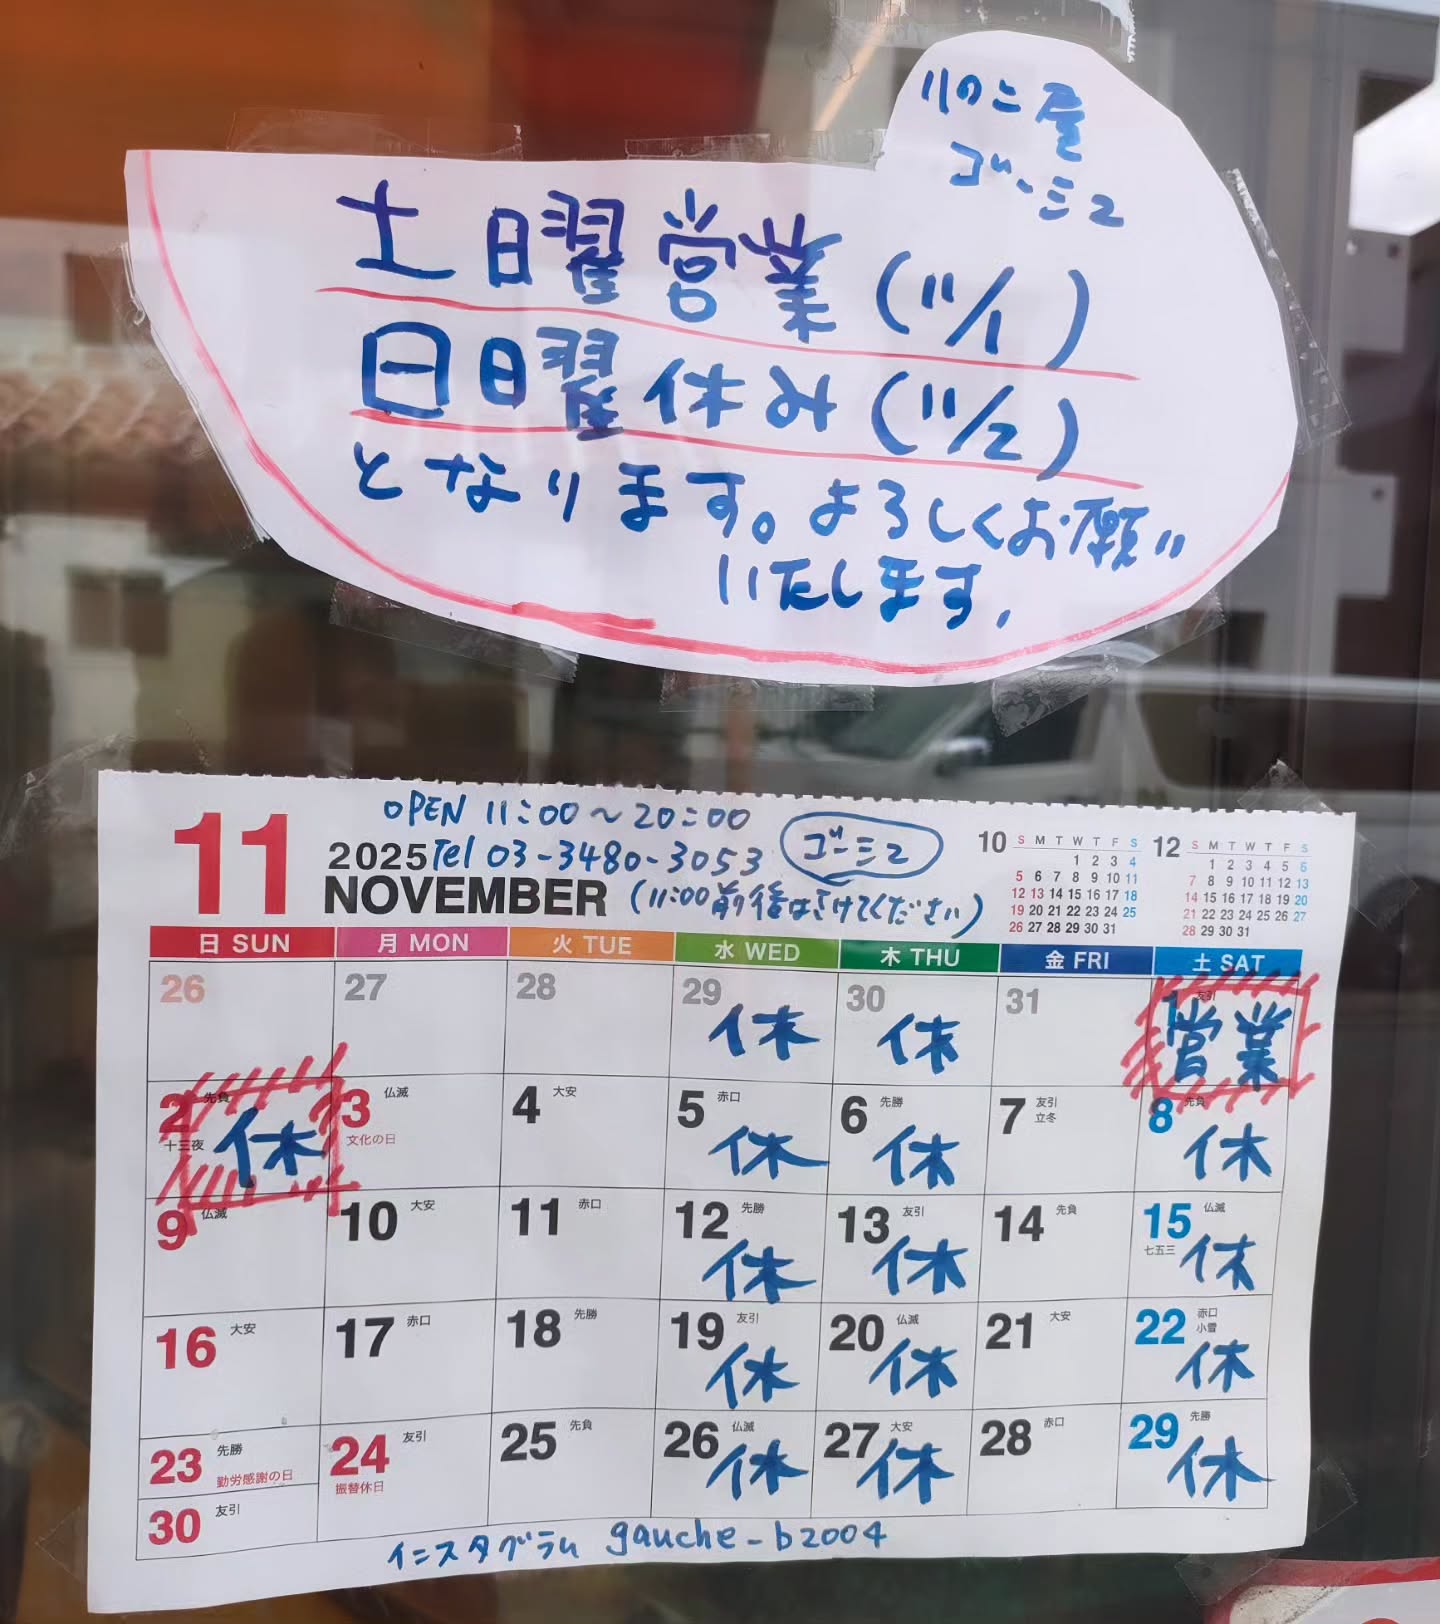 りのこ屋
ゴーシュ
土曜営業(11/1)
日曜休み(11/2)
となります。よろしくお願い
いたします。
OPEN 11:00〜20:00
11
2025 Tel 03-3480-3053 ゴーシュ
NOVEMBER (11:00前後はさけてください)
10
S M T W T F S
1 2 3 4
5 6 7 8 9 10 11
12 13 14 15 16 17 18
19 20 21 22 23 24 25
26 27 28 29 30 31
12
S M T W T F S
1 2 3 4 5 6
7 8 9 10 11 12 13
14 15 16 17 18 19 20
21 22 23 24 25 26 27
28 29 30 31
日 SUN 月 MON 火 TUE 水 WED 木 THU 金 FRI 土 SAT
26 27 28 29 休 30 休 31 1 友引 営業
2 先負 十三夜 休 3 仏滅 文化の日 4 大安 5 赤口 休 6 先勝 休 7 友引 立冬 8 先負 休
9 仏滅 10 大安 11 赤口 12 先勝 休 13 友引 休 14 先負 15 仏滅 七五三 休
16 大安 17 赤口 18 先勝 19 友引 休 20 仏滅 休 21 大安 22 赤口 小雪 休
23 先勝 勤労感謝の日 24 友引 振替休日 25 先負 26 仏滅 休 27 大安 休 28 赤口 29 先勝 休
30 友引
インスタグラム gauche_b2004